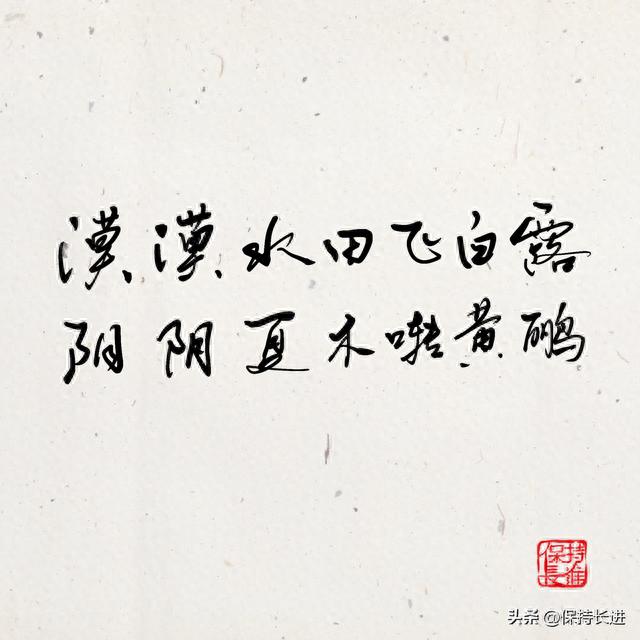 漠漠水田飞白露
阴阴夏木啭黄鹂
保持
长进
头条 @保持长进